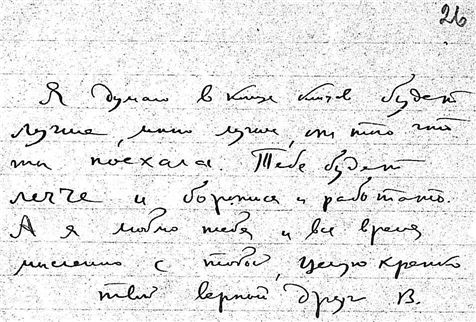 26
Я думаю в конце концов будет
лучше, много лучше, от того что
ты поехала. Тебе будет
легче и бороться и работать.
А я люблю тебя и все время
мысленно с тобой, целую крепко
твой верный друг В.